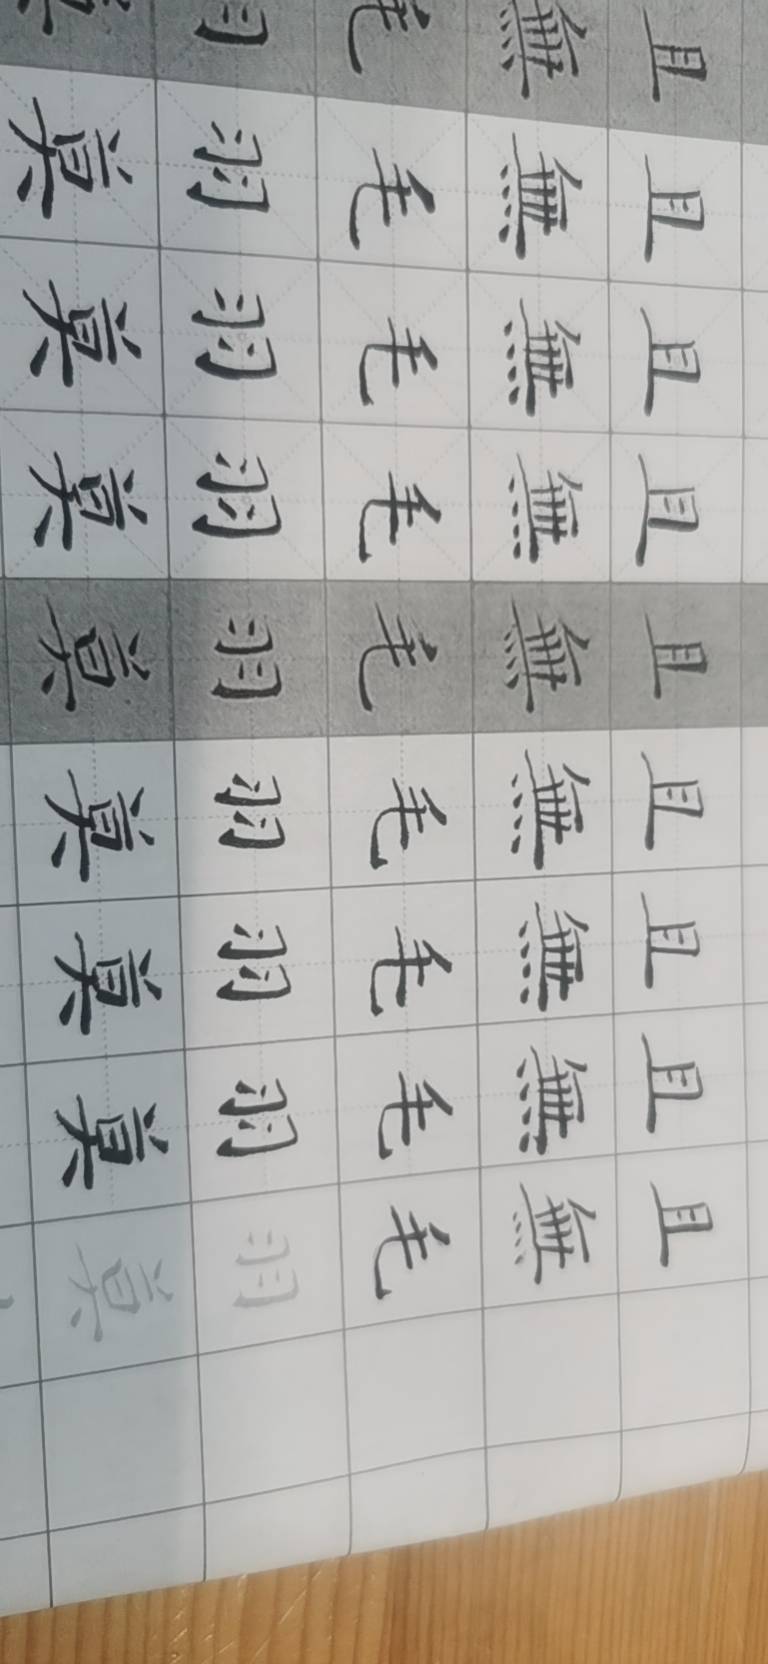 且且且且且且且且且
無無無無無無無無無
毛毛毛毛毛毛毛毛毛
羽羽羽羽羽羽羽羽羽
莫莫莫莫莫莫莫莫莫